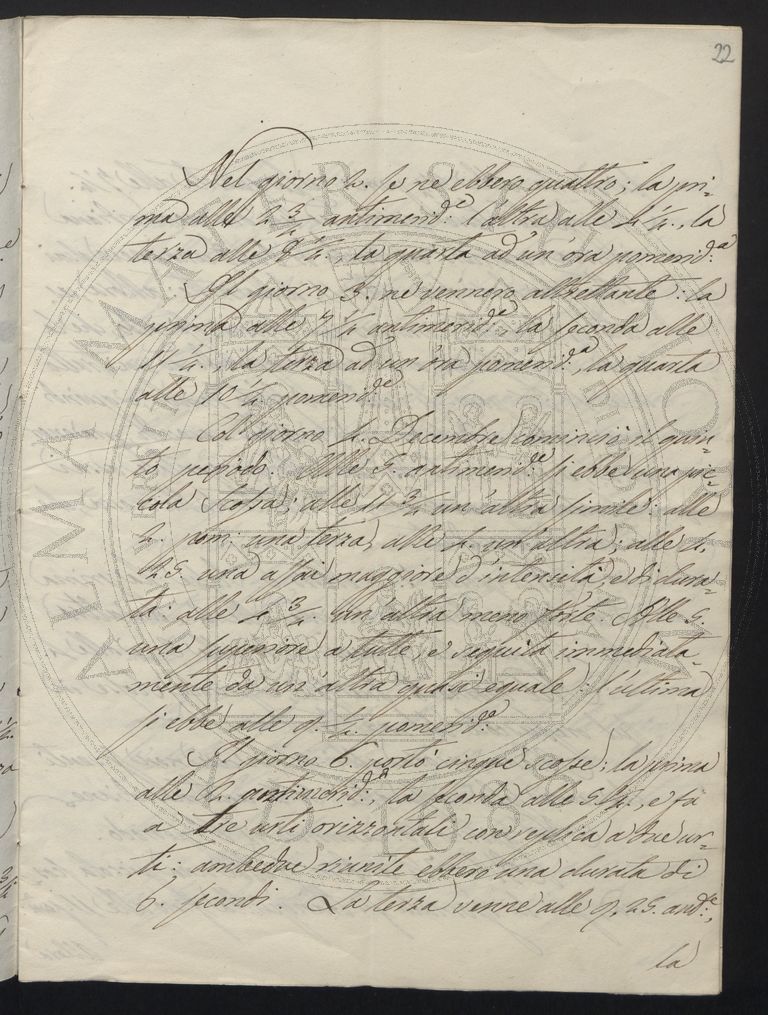 22
Nel giorno 2. se ne ebbero quattro; la pri-
ma alle 2 3/4 antimerid.e l'altra alle 4 1/4., la
terza alle 8 1/4., la quarta ad un'ora pomerid.a
Il giorno 3. ne vennero altrettante: la
prima alle 7 1/4 antimerid.e, la seconda alle
11 1/4., la terza ad un'ora pomerid.a, la quarta
alle 10 1/4 pomerid.e
Col giorno 4. Decembre cominciò il quin-
to periodo. Alle 5. antimerid.e si ebbe una pic-
cola scossa; alle 11 3/4 un'altra simile: alle
2. pom: una terza, alle 4. un'altra; alle 4.
25. una assai maggiore d'intensità, e di dura-
ta: alle 4 3/4. un'altra meno forte. Alle 5.
una superiore a tutte, e seguita immediata-
mente da un'altra quasi eguale: l'ultima
si ebbe alle 9. 1/2. pomerid.e
Il giorno 6. portò cinque scosse: la prima
alle 2. antimerid.e, la seconda alle 5 1/2., e fu
a tre urti orizzontali con replica a due ur-
ti: ambedue riunite ebbero una durata di
6. secondi. La terza venne alle 9. 25. and.e:,
la
ALMA MATER STUDIORUM
A.D. 1088